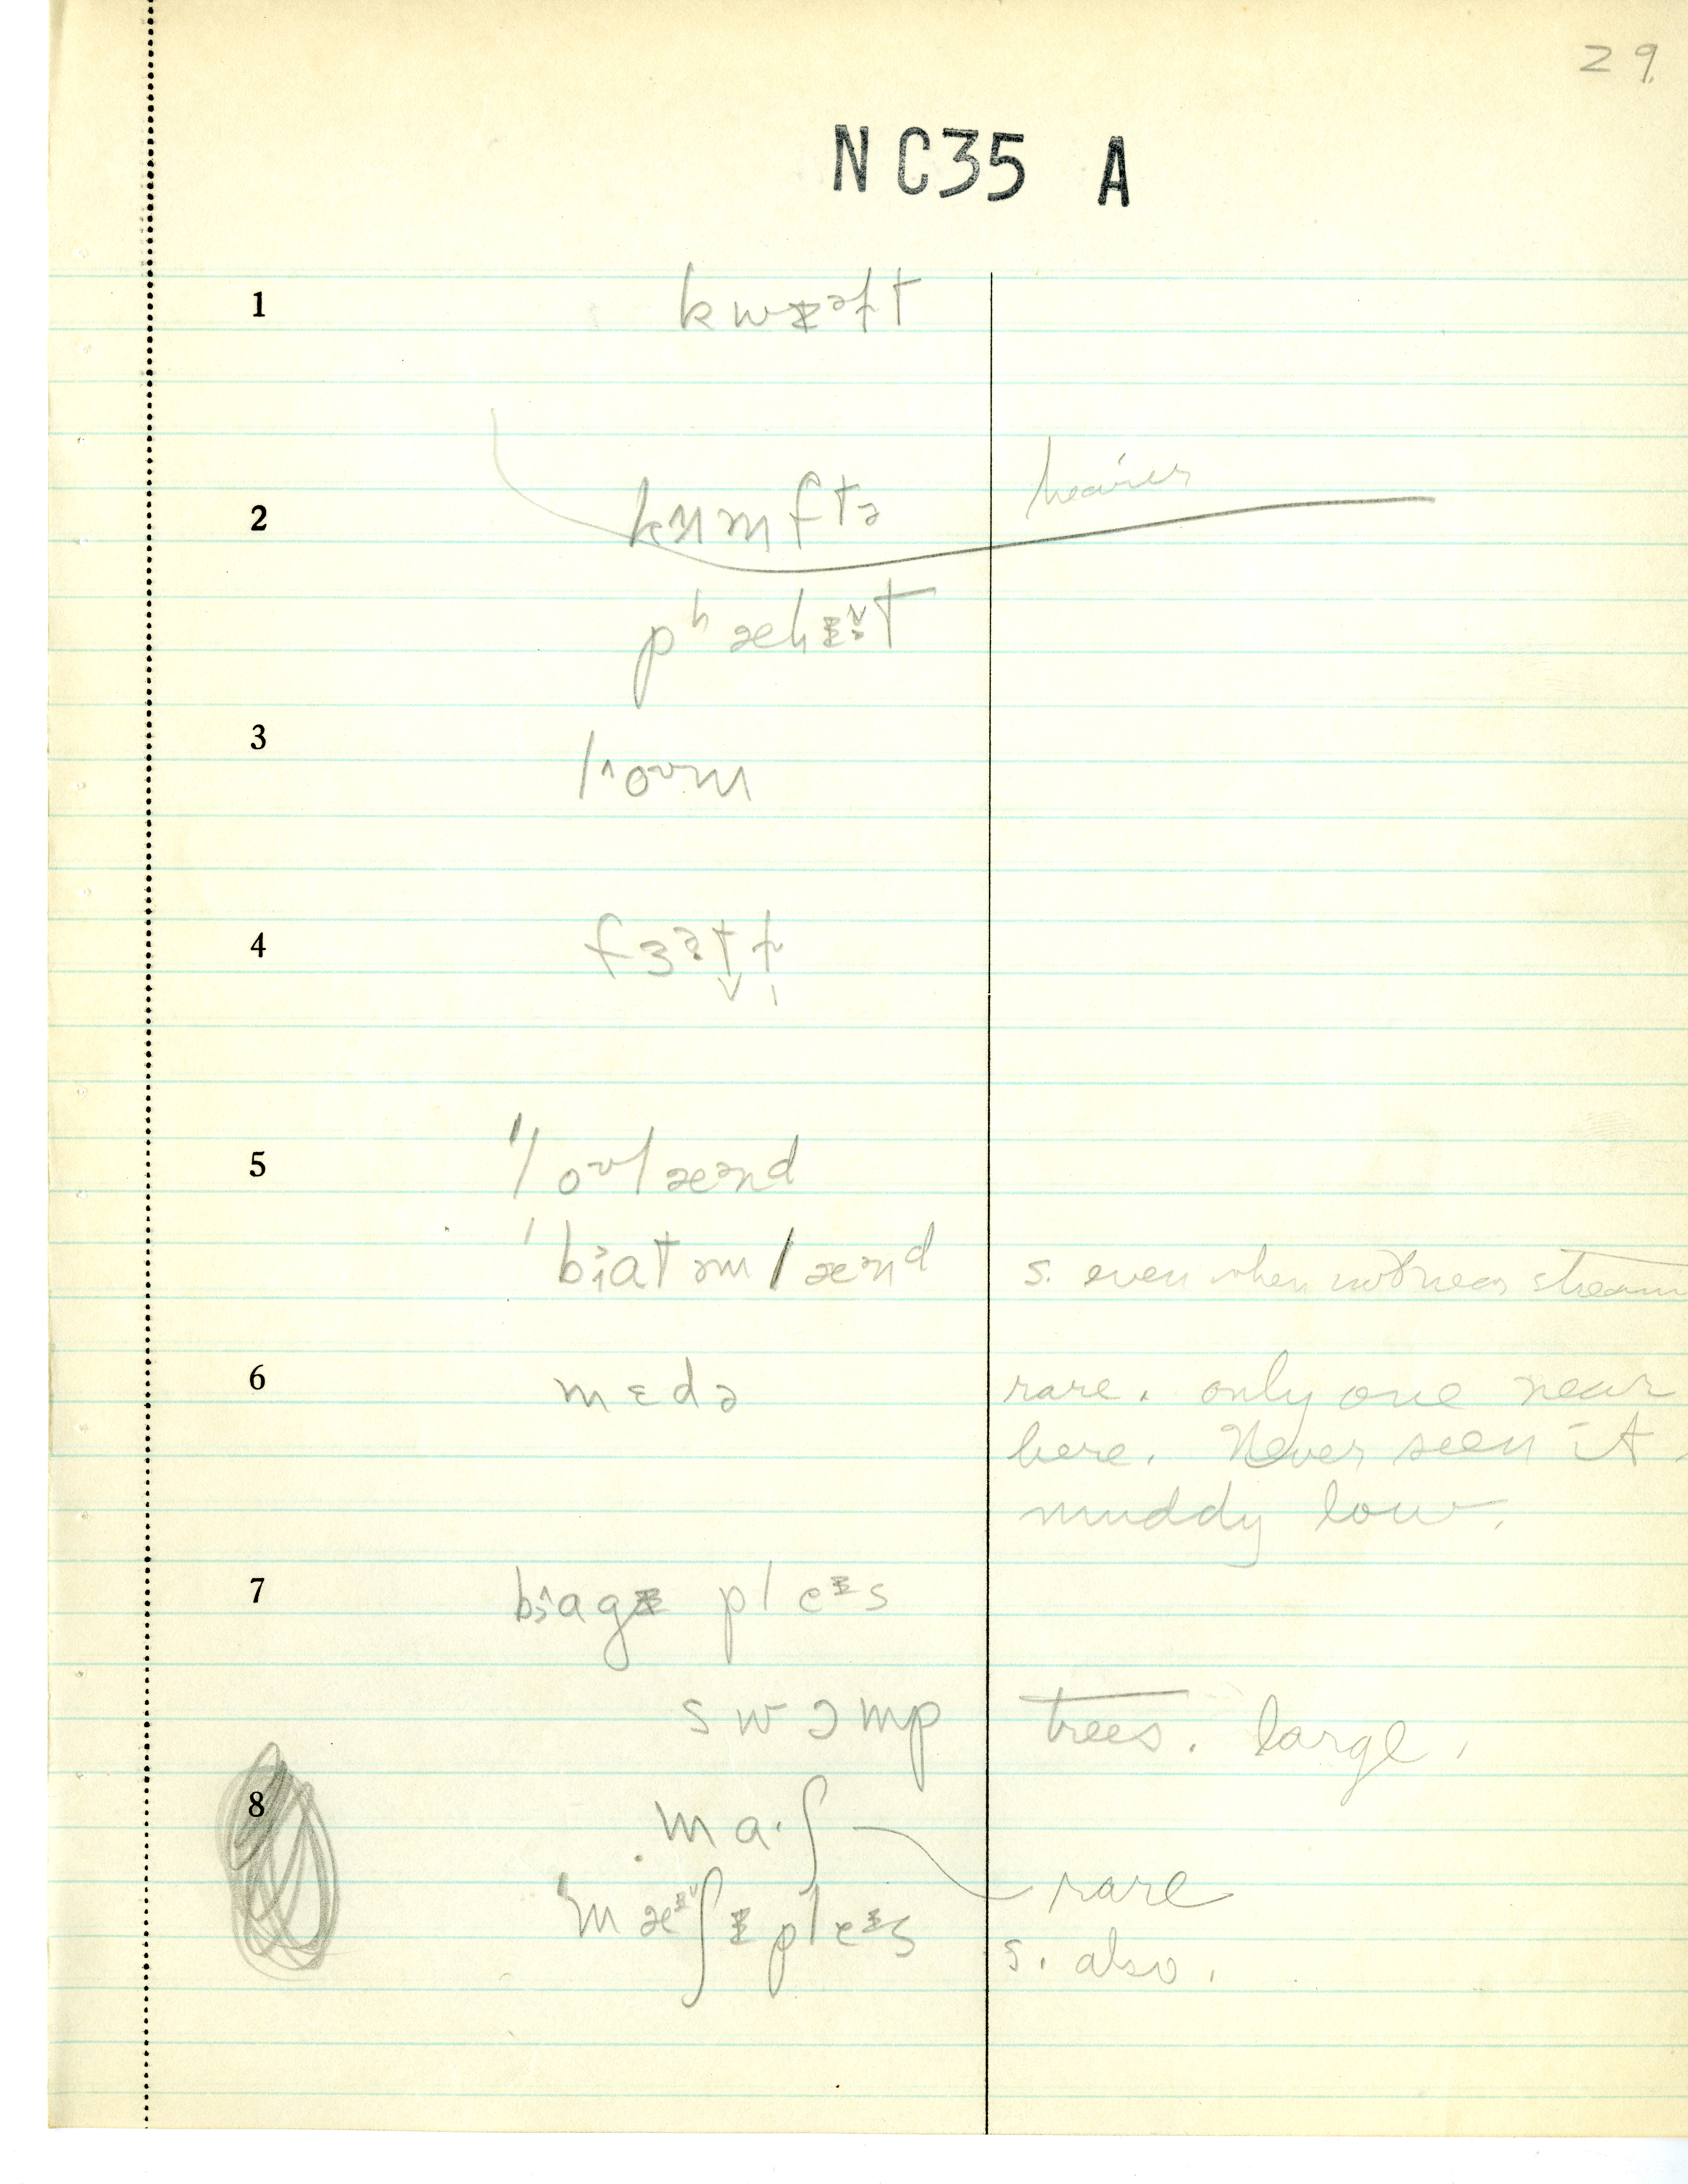 29.
NC35 A
1 kwɪəɫt
2 kʌmftə heavier
pʰæɫɪt
3 loʊm
4 fɜətɫ
5 ˈloʊlænd
ˈbɑtəmlænd s. even when not near stream
6 mɛdə rare. only one near
here. Never seen it
muddy low.
7 bɑgɪ pleɪs
swɔmp trees. large.
8 mɑ·ʃ rare
ˈmæɪʃɪ pleɪs s. also.